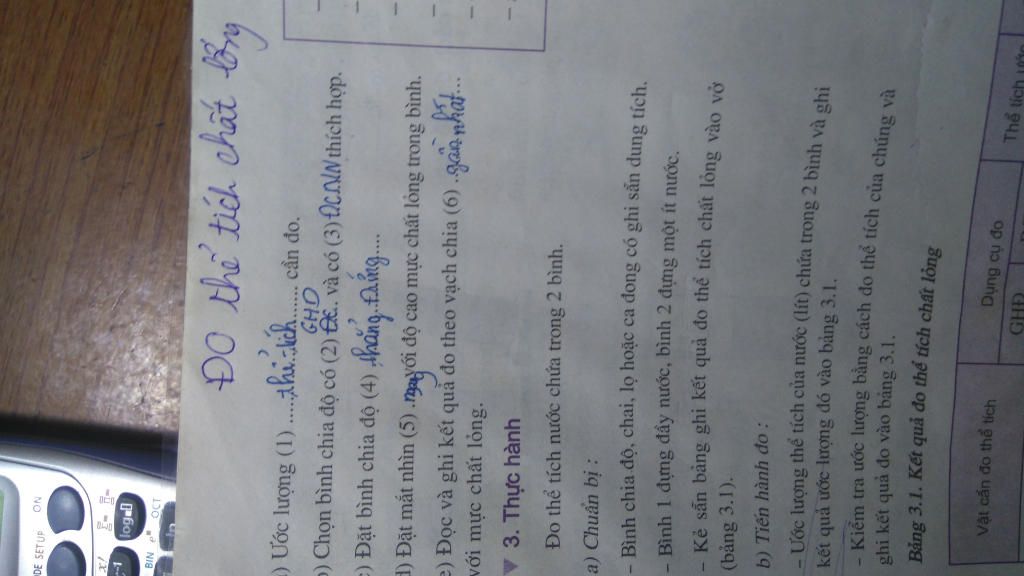 ĐO thể tích chất lỏng
) Ước lượng (1) ......thể..tích......... cần đo.
GHĐ
b) Chọn bình chia độ có (2) ĐC.. và có (3) ĐCNN thích hợp.
c) Đặt bình chia độ (4) .thẳng..đứng....
d) Đặt mắt nhìn (5) với độ cao mực chất lỏng trong bình.
e) Đọc và ghi kết quả đo theo vạch chia (6) ..gần..nhất...
với mực chất lỏng.
▼ 3. Thực hành
Đo thể tích nước chứa trong 2 bình.
a) Chuẩn bị :
- Bình chia độ, chai, lọ hoặc ca đong có ghi sẵn dung tích.
- Bình 1 đựng đầy nước, bình 2 đựng một ít nước.
- Kẻ sẵn bảng ghi kết quả đo thể tích chất lỏng vào vở
(bảng 3.1).
b) Tiến hành đo :
- Ước lượng thể tích của nước (lít) chứa trong 2 bình và ghi
kết quả ước lượng đó vào bảng 3.1.
- Kiểm tra ước lượng bằng cách đo thể tích của chúng và
ghi kết quả đo vào bảng 3.1.
Bảng 3.1. Kết quả đo thể tích chất lỏng
Vật cần đo thể tích
Dụng cụ đo
Thể tích ước
GHĐ
ON
MODE SETUP
log
BIN
OCT